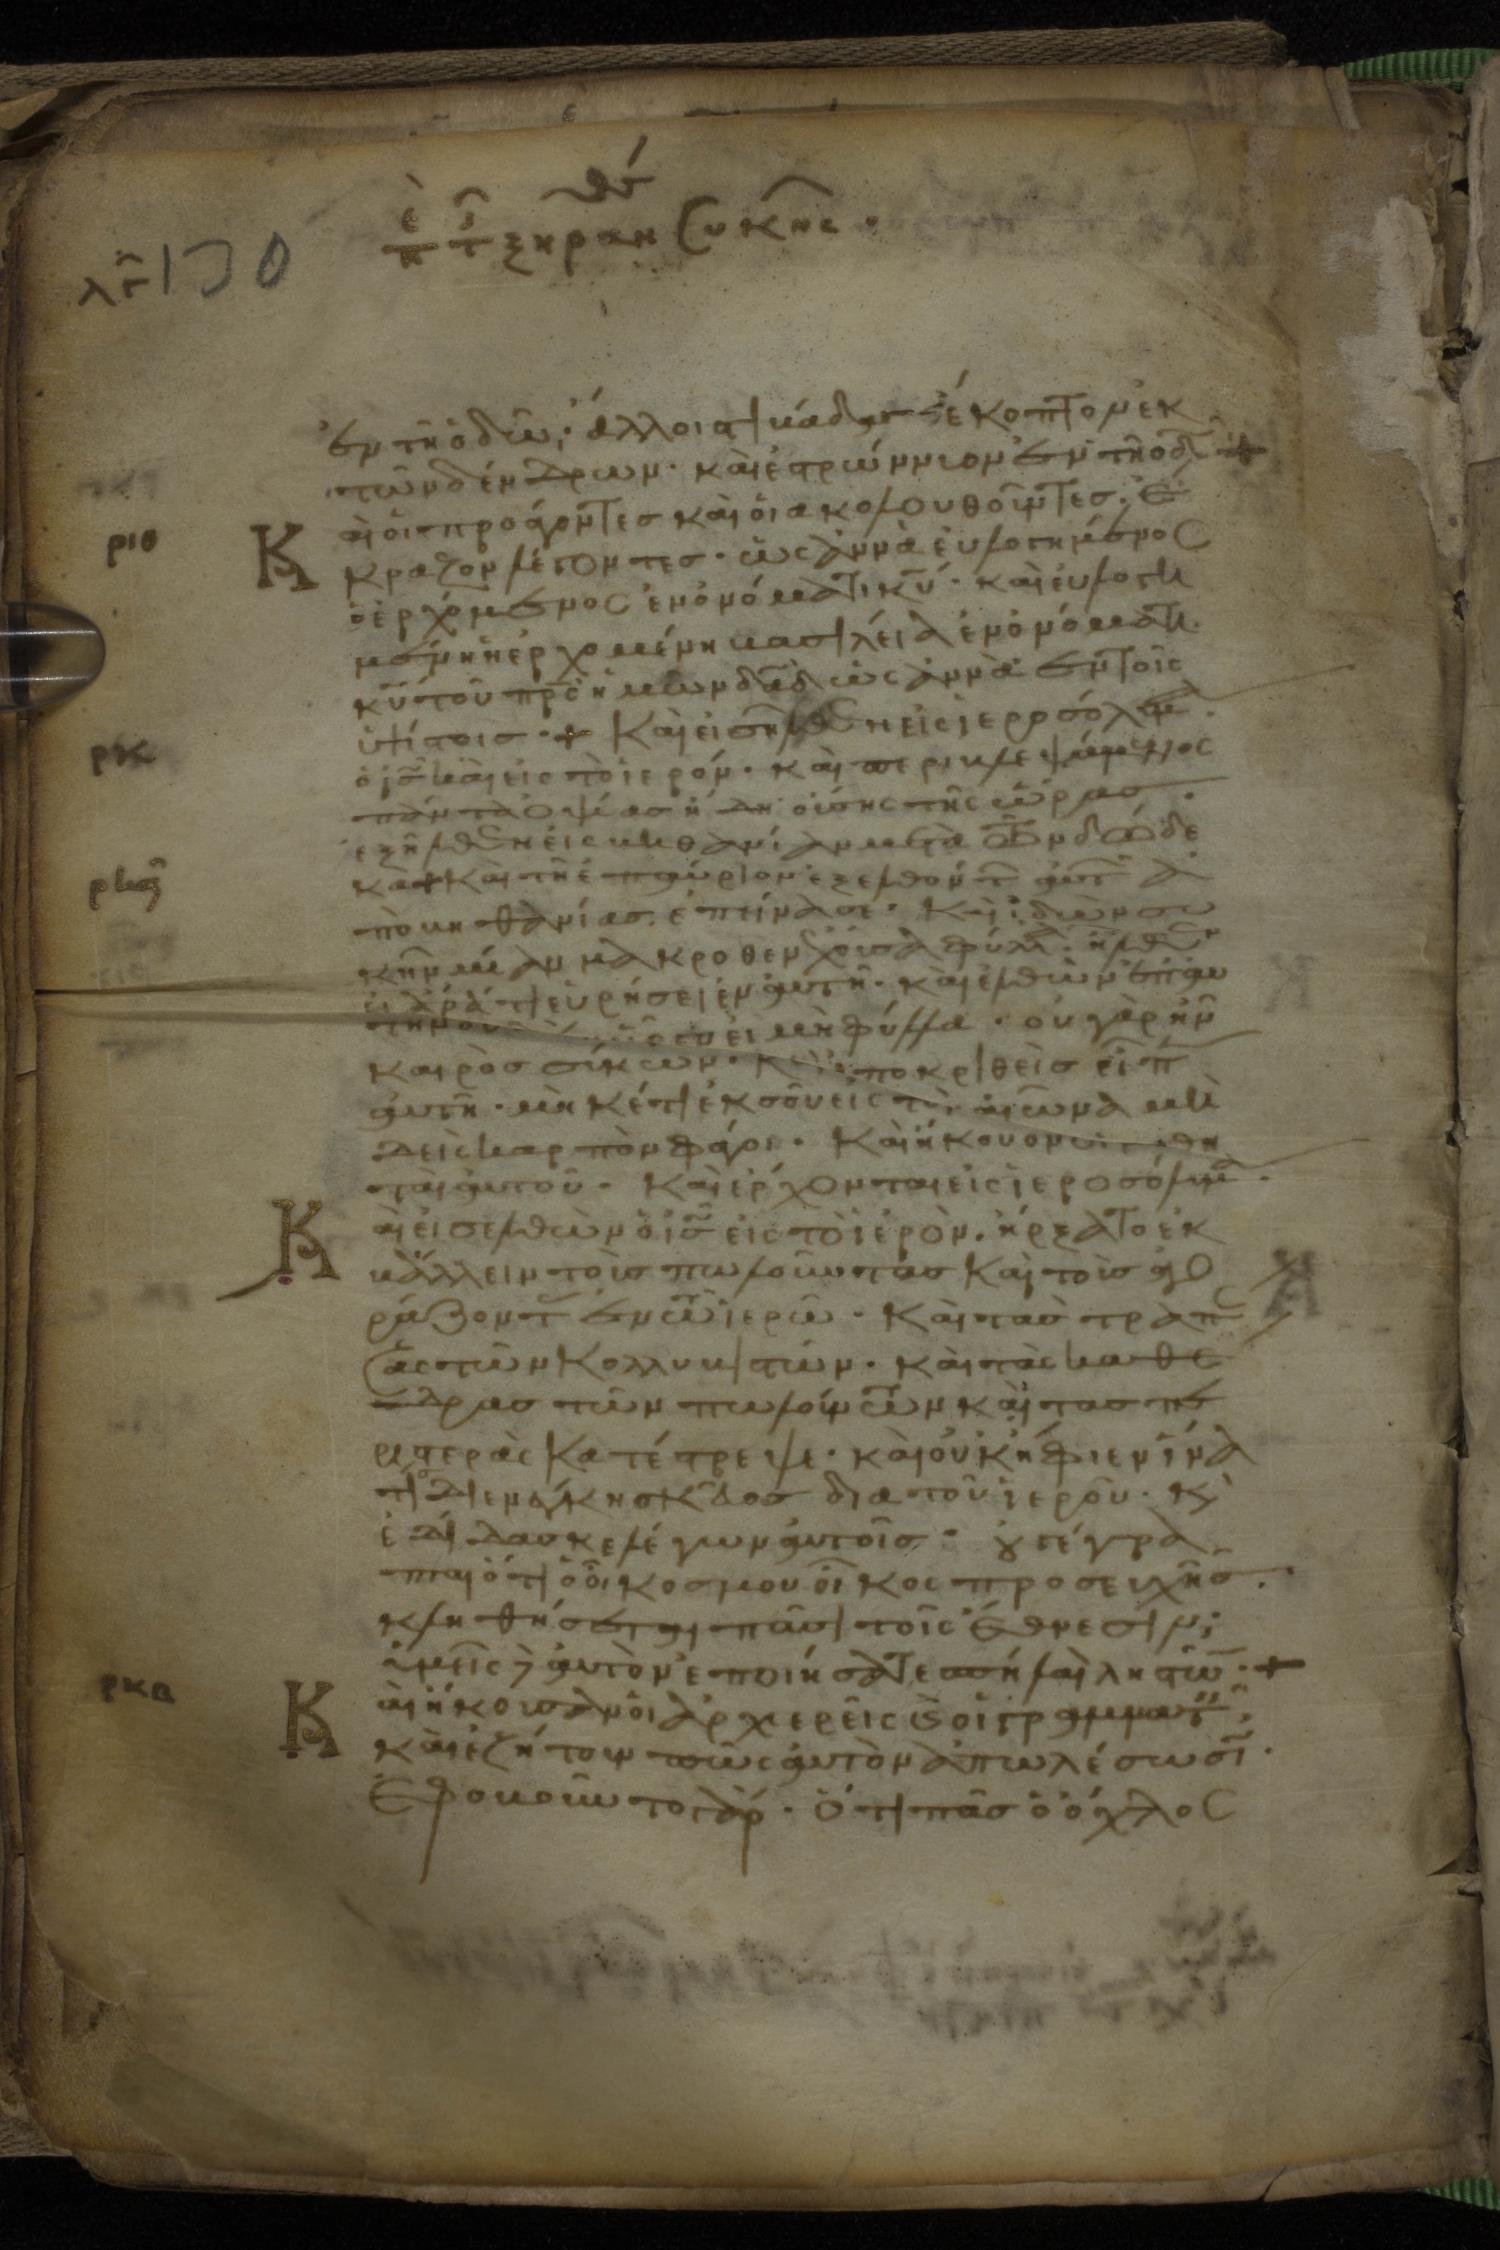 λγ 130
ἐπ τ ξηρανθ συκῆς ·
ἐν τῆ ὁδῶ· ἄλλοι στιβάδας ἔκοπτον ἐκ
τῶν δένδρων · καὶ ἐστρώννυον ἐν τῆ ὁδ +
ριθ Καὶ οἱ προάγοντες καὶ οἱ ἀκολουθοῦντες · ἔ
κραζον λέγοντες · ὡς ἀννὰ εὐλογημένος
ὁ ἐρχόμενος ἐν ὀνόματι κυ · καὶ εὐλογη
μένη ἡ ἐρχομένη βασιλεία ἐν ὀνόματι
κυ τοῦ πρς ἡμῶν δαδ ὡς ἀννὰ ἐν τοῖς
ρκ ὑψίστοις · + Καὶ εἰσῆλθεν εἰς ἱεροσόλυμα ·
ὁ ις καὶ εἰς τὸ ἱερόν · καὶ περιβλεψάμενος
πάντα ὀψίας ἤδη οὔσης τῆς ὥρας ·
ἐξῆλθεν εἰς βηθανίαν μετὰ τῶν δώδε
ρκα κα + Καὶ τῆ ἐπαύριον ἐξελθόντ αὐτ ἀ
πὸ βηθανίας ἐπείνασε · Καὶ ἰδὼν συ
κῆν μακροθεν ἔχουσα φύλλ · ἦλθεν
εἰ ἄρα τι εὑρήσει ἐν αὐτῆ · καὶ ἐλθὼν ἐπ αυ
εἰ μὴ φύλλα · οὐ γὰρ ἦν
καιρὸς σύκων · Καὶ ἀποκριθεὶς εἶπ
αὐτῆ · μὴ κέτι ἐκ σοῦ εἰς τὸν αἰῶνα μη
δεὶς καρπὸν φάγοι · Καὶ ἤκουον οἱ μαθη
ταὶ αὐτοῦ · Καὶ ἔρχονται εἰς ἱεροσόλυμα ·
Καὶ εἰσελθὼν ὁ ις εἰς τὸ ἱερὸν · ἤρξατο ἐκ
βάλλειν τοὺς πωλοῦντας καὶ τοὺς ἀγο
ράζοντ ἐν τῶ ἱερῶ · Καὶ τὰς τραπέ
ζας τῶν κολλυβιστῶν · καὶ τὰς καθέ
δρας τῶν πωλούντων καὶ τὰς πε
ριστερὰς κατέστρεψε · καὶ οὐκ ἤφιεν ἵνα
τις διενέγκη σκεῦος διὰ τοῦ ἱεροῦ · κὶ
ἐδίδασκε λέγων αὐτοῖς · οὐ γέγρα
πται ὅτι ὁ οἶκος μου οἶκος προσευχῆς ·
κληθήσεται πᾶσι τοῖς ἔθνεσιν;
ὑμεῖς δ αὐτὸν ἐποιήσατε σπήλαι ληστῶν · +
ρκβ Καὶ ἤκουσαν οἱ ἀρχιερεῖς κ οἱ γραμματ ·
καὶ ἐζήτουν πῶς αὐτὸν ἀπωλέσωσι ·
Ἐφοβοῦντο γὰρ · ὅτι πᾶς ὁ ὄχλος